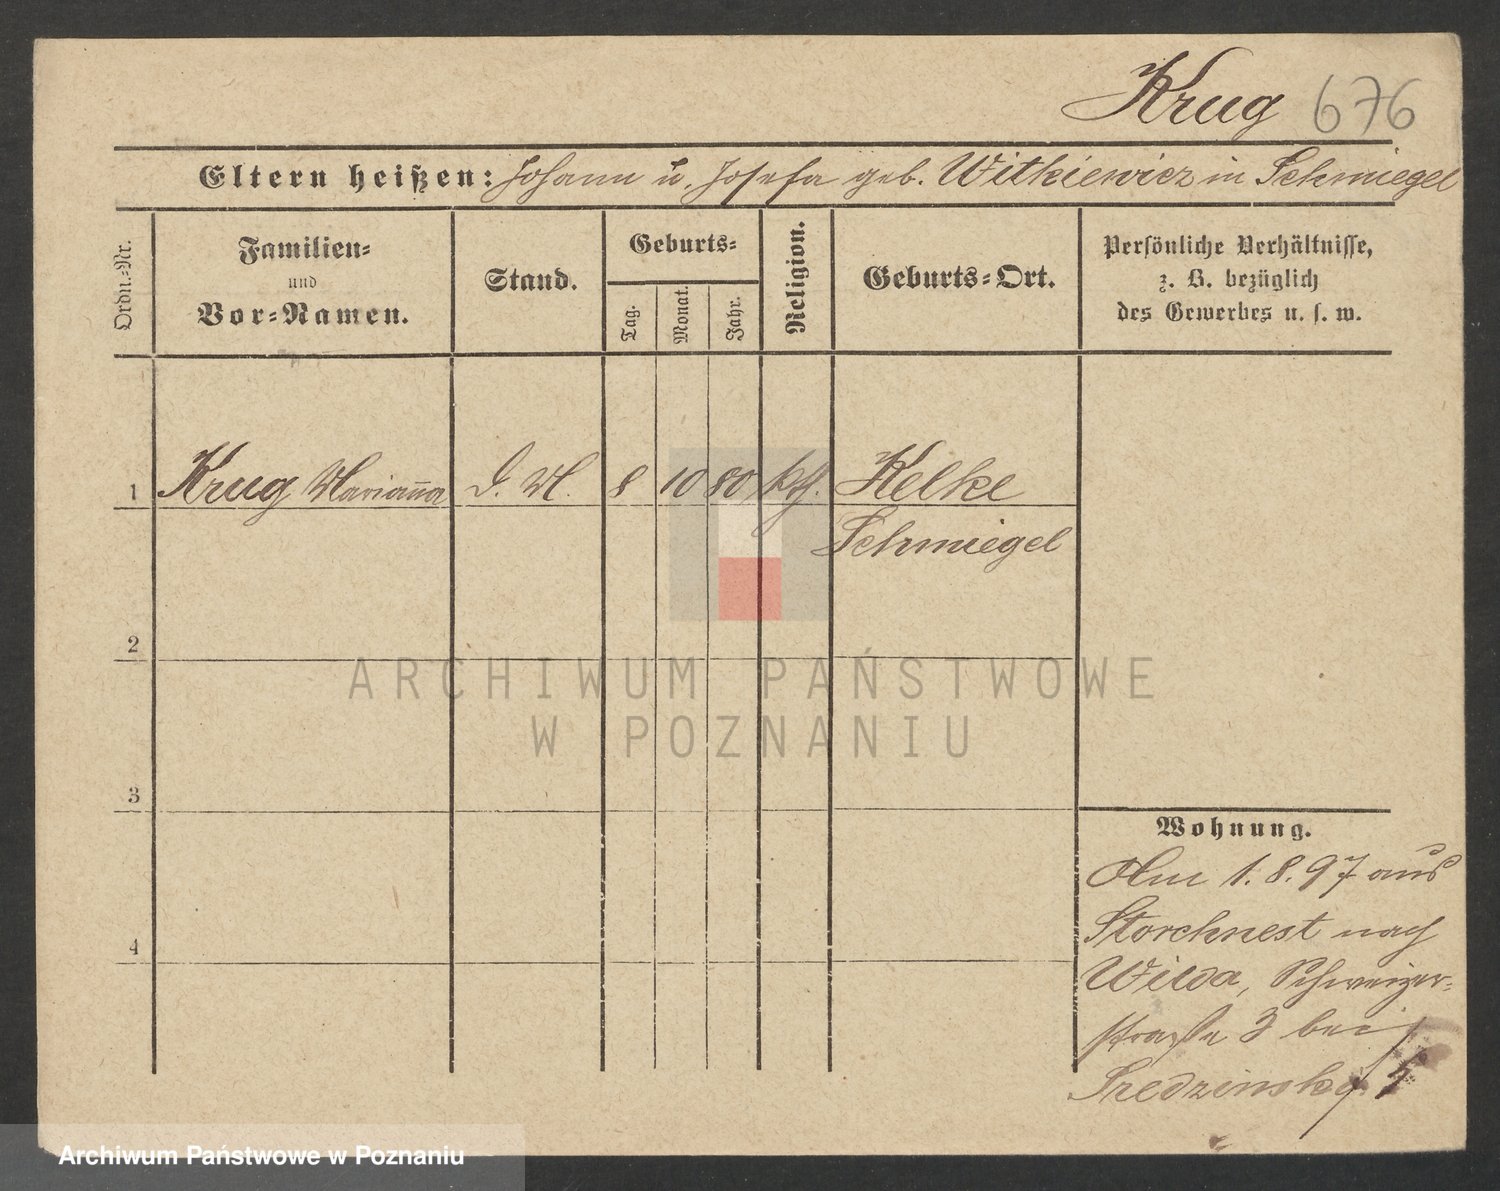 Krug 676
Eltern heißen: Johann u. Josefa geb. Witkiewicz in Schmiegel
Ordn.-Nr.
Familien-
und
Vor-Namen.
Stand.
Geburts-
Tag.
Monat.
Jahr.
Religion.
Geburts-Ort.
Persönliche Verhältnisse,
z. B. bezüglich
des Gewerbes u. s. w.
1 Krug Marianna D. M. 8 10 80 kth. Kelke
Schmiegel
2
3
4
Wohnung.
Am 1.8.97 aus
Storchnest nach
Wilda, Schweizer-
straße 3 bei
Sredzinsky
ARCHIWUM PAŃSTWOWE
W POZNANIU
Archiwum Państwowe w Poznaniu